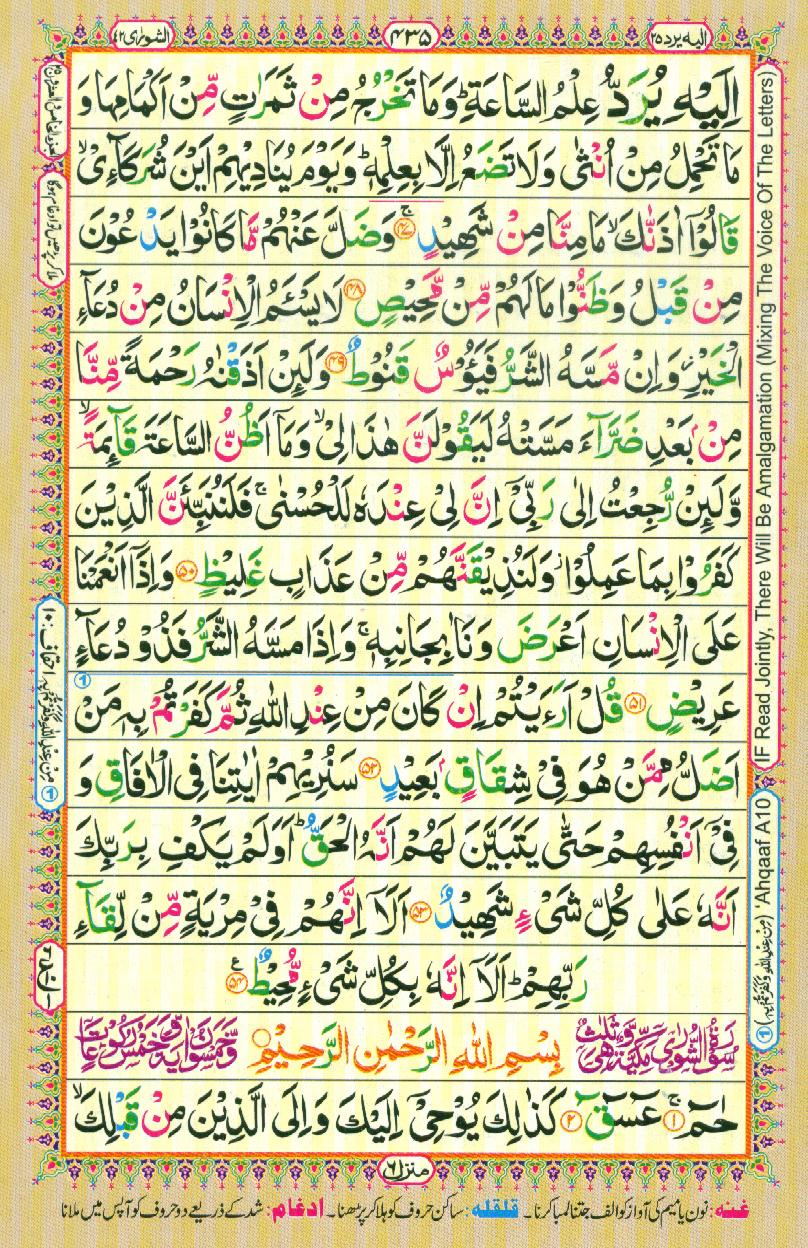 الشورٰی ۴۲
۴۳۵
الیہ یرد ۲۵
اِلَيْهِ يُرَدُّ عِلْمُ السَّاعَةِ ؕ وَمَا تَخْرُجُ مِنْ ثَمَرٰتٍ مِّنْ اَكْمَامِهَا وَ
مَا تَحْمِلُ مِنْ اُنْثٰى وَلَا تَضَعُ اِلَّا بِعِلْمِهٖ ؕ وَيَوْمَ يُنَادِيْهِمْ اَيْنَ شُرَكَآءِىْ ۙ
قَالُوْٓا اٰذَنّٰكَ ۙ مَا مِنَّا مِنْ شَهِيْدٍ ۚ ﴿۴۷﴾ وَضَلَّ عَنْهُمْ مَّا كَانُوْا يَدْعُوْنَ
مِنْ قَبْلُ وَظَنُّوْا مَا لَهُمْ مِّنْ مَّحِيْصٍ ﴿۴۸﴾ لَا يَسْـَٔمُ الْاِنْسَانُ مِنْ دُعَآءِ
الْخَيْرِ ۫ وَاِنْ مَّسَّهُ الشَّرُّ فَيَـُٔوْسٌ قَنُوْطٌ ﴿۴۹﴾ وَلَئِنْ اَذَقْنٰهُ رَحْمَةً مِّنَّا
مِنْۢ بَعْدِ ضَرَّآءَ مَسَّتْهُ لَيَقُوْلَنَّ هٰذَا لِىْ ۙ وَمَآ اَظُنُّ السَّاعَةَ قَآئِمَةً ۙ
وَّلَئِنْ رُّجِعْتُ اِلٰى رَبِّىْٓ اِنَّ لِىْ عِنْدَهٗ لَلْحُسْنٰى ۚ فَلَنُنَبِّئَنَّ الَّذِيْنَ
كَفَرُوْا بِمَا عَمِلُوْا ۫ وَلَنُذِيْقَنَّهُمْ مِّنْ عَذَابٍ غَلِيْظٍ ﴿۵۰﴾ وَاِذَآ اَنْعَمْنَا
عَلَى الْاِنْسَانِ اَعْرَضَ وَنَاٰ بِجَانِبِهٖ ۚ وَاِذَا مَسَّهُ الشَّرُّ فَذُوْ دُعَآءٍ
عَرِيْضٍ ﴿۵۱﴾ قُلْ اَرَءَيْتُمْ اِنْ كَانَ مِنْ عِنْدِ اللّٰهِ ثُمَّ كَفَرْتُمْ بِهٖ مَنْ
اَضَلُّ مِمَّنْ هُوَ فِىْ شِقَاقٍۢ بَعِيْدٍ ﴿۵۲﴾ سَنُرِيْهِمْ اٰيٰتِنَا فِى الْاٰفَاقِ وَ
فِىْٓ اَنْفُسِهِمْ حَتّٰى يَتَبَيَّنَ لَهُمْ اَنَّهُ الْحَقُّ ؕ اَوَلَمْ يَكْفِ بِرَبِّكَ
اَنَّهٗ عَلٰى كُلِّ شَىْءٍ شَهِيْدٌ ﴿۵۳﴾ اَلَآ اِنَّهُمْ فِىْ مِرْيَةٍ مِّنْ لِّقَآءِ
رَبِّهِمْ ؕ اَلَآ اِنَّهٗ بِكُلِّ شَىْءٍ مُّحِيْطٌ ﴿۵۴﴾ ع
سُوْرَةُ الشُّوْرٰى مَكِّيَّةٌ وَّهِىَ ثَلٰثٌ وَّخَمْسُوْنَ اٰيَةً وَّخَمْسُ رُكُوْعَاتٍ
بِسْمِ اللّٰهِ الرَّحْمٰنِ الرَّحِيْمِ
حٰمٓ ۚ ﴿۱﴾ عٓسٓقٓ ﴿۲﴾ كَذٰلِكَ يُوْحِىْٓ اِلَيْكَ وَاِلَى الَّذِيْنَ مِنْ قَبْلِكَ ۙ
IF Read Jointly, There Will Be Amalgamation (Mixing The Voice Of The Letters)
① (مِنْ عِنْدِ اللّٰهِ وَكَفَرْتُمْ بِهٖ) 'Ahqaaf A10
ملا کر پڑھیں تو ادغام ہوگا
① مِنْ عِنْدِ اللّٰهِ وَكَفَرْتُمْ بِهٖ احقاف : ۱۰
منزل ۶
غنہ: نون یا میم کی آواز کو الف جتنا لمبا کرنا۔ قلقلہ: ساکن حروف کو ہلا کر پڑھنا۔ ادغام: شد کے ذریعے دو حروف کو آپس میں ملانا